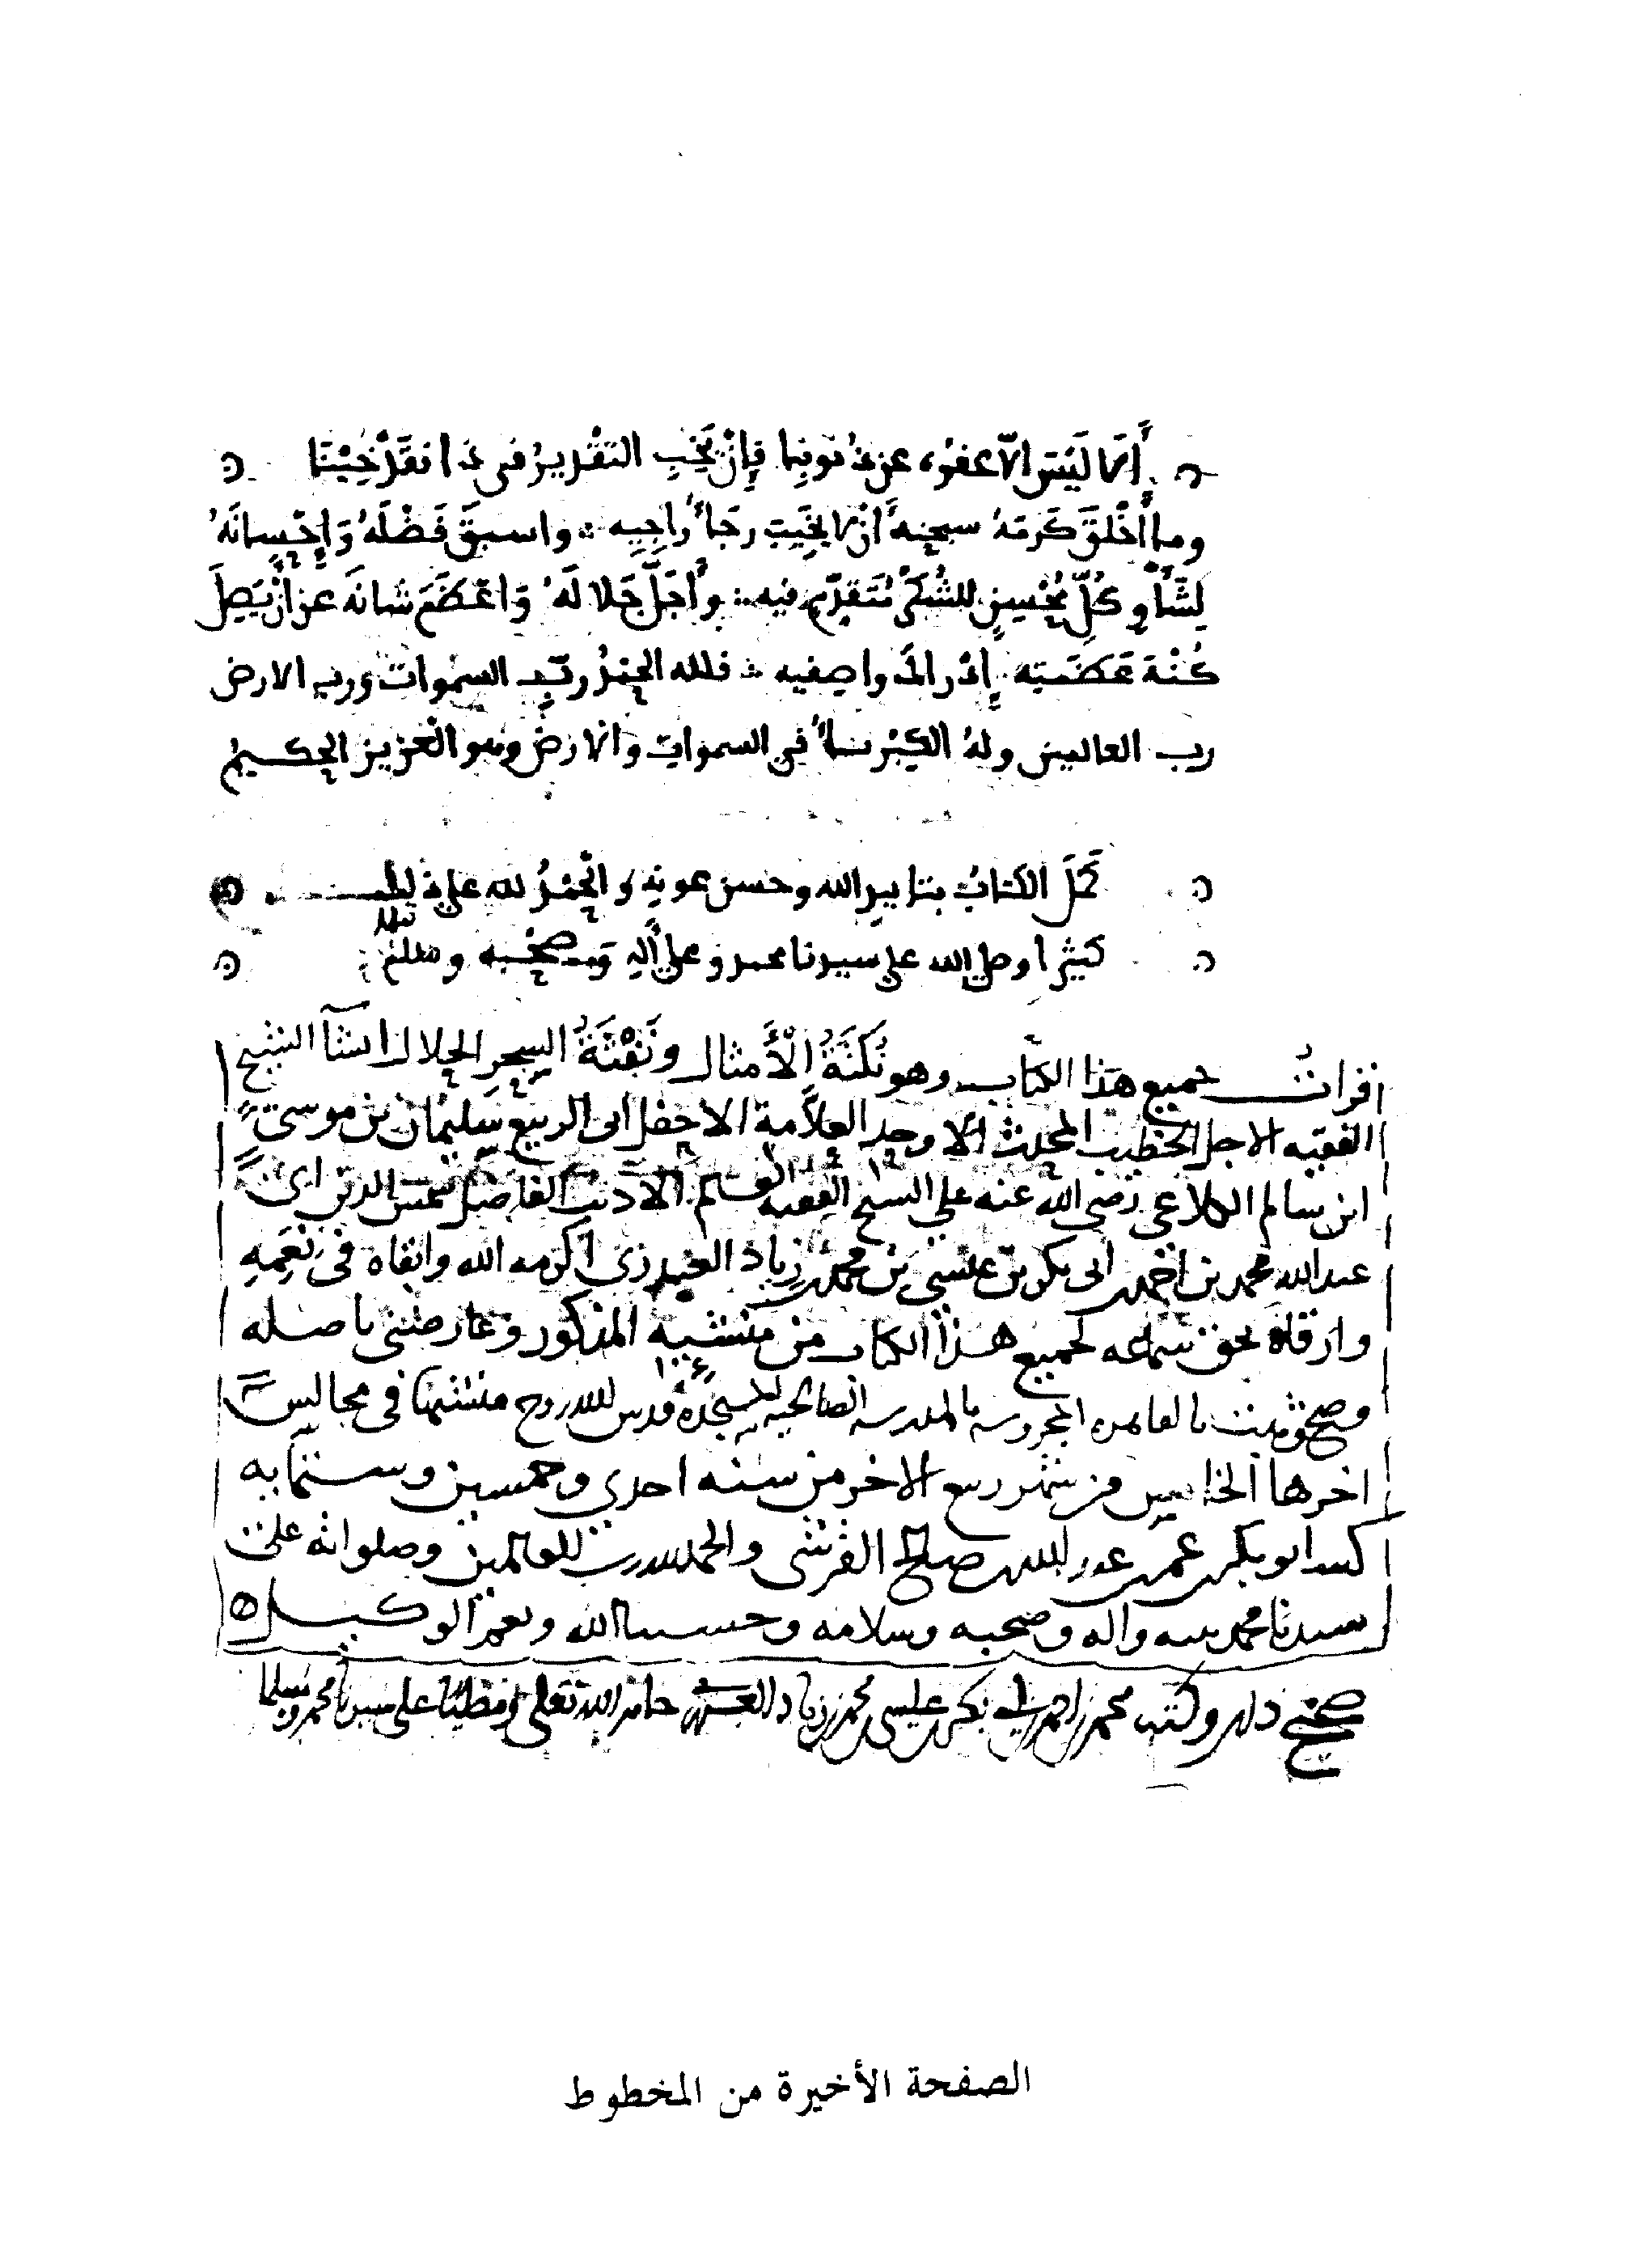 أَمَا لَيْسَ الاّ عفوُه عن ذُنوبِنا فإِنْ يَخِبِ التقْديرُ في ذا فقَدْ خِبْنَا
وما أَخْلَقَ كَرَمَهُ سبحنهُ أَنْ لا يخَيِّبَ رجَاءَ راجِيهِ ۞ واسبقَ فَضْلَهُ وَإِحْسانَهُ
لِشَأْوِ كُلِّ مُحْسِنٍ للشُكْرِ مُتَقدِّمٍ فيه ۞ وأَجَلَّ جَلالَهُ وَاعْظَمَ شانَهُ عن انْ يَصِلَ
كُنْهَ عَظَمَتِه إِدْراكُ واصِفيه ۞ فلله الحمْدُ ربِّ السموات وربِ الارض
رب العالمين ولهُ الكِبْرِياءُ في السموات والارض وهو العَزيز الحكيمُ
كَمَلَ الكتابُ بتاييدِ الله وحسن عونِهِ والحمْدُ لله على ذلك
كثيرًا وصلى الله على سيدنا محمد وعلى أَلِهِ وصَحْبه وسلم
اقرات جميع هذا الكتاب وهو نُكْتَةُ الأَمثال ونَفْثَةُ السِحر الحلال انشآ الشيخ
الفقيه الاجل الخطيب المحدث الاوحد العلاَّمة الاحفل ابى الربيع سليمان بن موسى
ابن سالم الكلاعي رضي الله عنه على الشيخ الفقيه العالم الاديب الفاضل شمس الدين ابى
عبد الله محمد بن احمد بن ابى بكر بن عيسى بن محمد بن زياد اكرمه الله وابقاه في نِعَمِهِ
وارقاه بحق سماعه لجميع هذا الكتاب من منشيه المذكور وعارضنى باصله
وصح وثبت بالقاهره المحروسه بالمدرسه الصالحيه قدس الله روح منشئها في مجالس
اخرها الخامس من شهر ربيع الاخر من سنه احدي وخمسين وستمايه
كتبه ابو بكر بن عمر بن صالح القرشى والحمد لله رب العالمين وصلواته على
سيدنا محمد نبيه واله وصحبه وسلامه وحسبنا الله ونعم الوكيل
صح ذلك وكتب محمد بن احمد بن ابي بكر بن عيسى بن محمد بن زياد حامدا لله تعلى ومصليًا على سيدنا محمد ومسلما
الصفحة الأخيرة من المخطوط